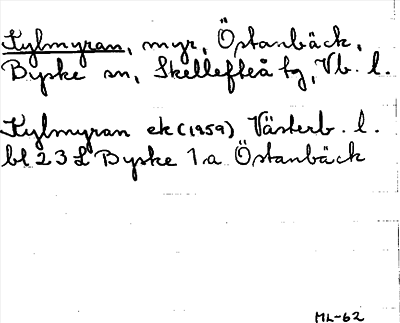 Kylmyran, myr, Östanbäck,
Byske sn, Skellefteå tg, Vb. l.
Kylmyran ek (1959) Västerb. l.
bl 23 L Byske 1a Östanbäck
ML-62